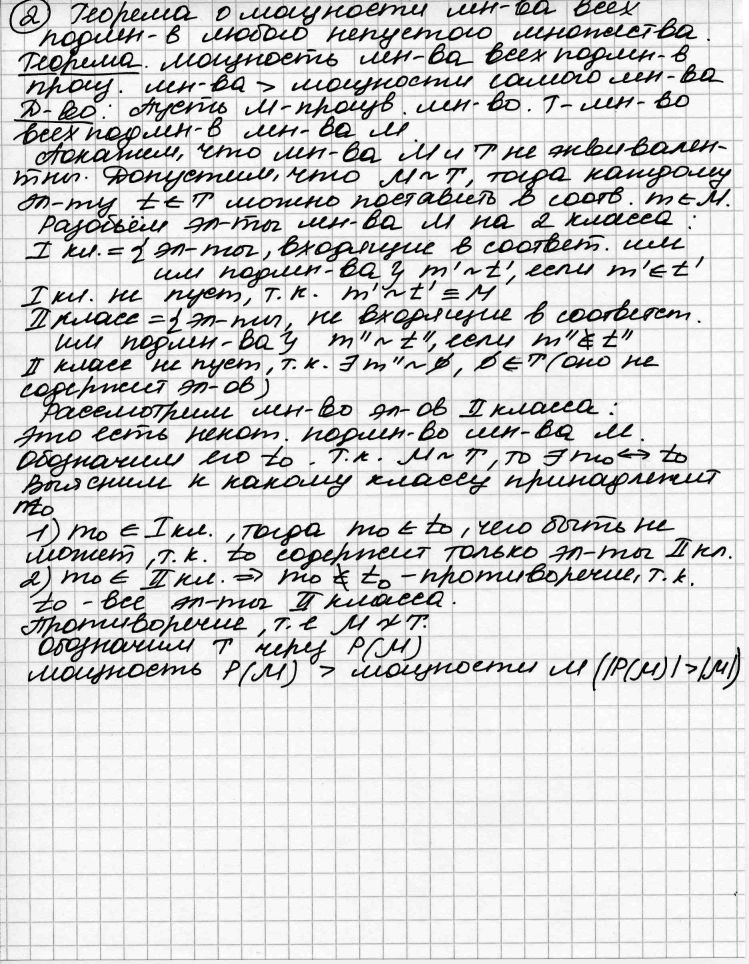 ② Теорема о мощности мн-ва всех
подмн-в любого непустого множества.
Теорема. Мощность мн-ва всех подмн-в
произ. мн-ва > мощности самого мн-ва
Д-во. Пусть М-произв. мн-во. Т-мн-во
всех подмн-в мн-ва М
Докажем, что мн-ва М и Т не эквивален-
тны. Допустим, что М~Т, тогда каждому
эл-ту t∈T можно поставить в соотв. m∈M.
Разобьём эл-ты мн-ва М на 2 класса:
I кл.={эл-ты, входящие в соответ. им
им подмн-ва} m'~t', если m'∈t'
I кл. не пуст, т.к. m'~t'≡M
II класс={эл-ты, не входящие в соответст.
им подмн-ва} m"~t", если m"∉t"
II класс не пуст, т.к. ∃m"~∅, ∅∈T (оно не
содержит эл-ов)
Рассмотрим мн-во эл-ов II класса:
Это есть некот. подмн-во мн-ва М.
Обозначим его t₀. Т.к. М~Т, то ∃m₀↔t₀
Выясним к какому классу принадлежит
m₀
1) m₀∈I кл., тогда m₀∈t₀, чего быть не
может, т.к. t₀ содержит только эл-ты II кл.
2) m₀∈ II кл.⇒ m₀∉t₀ - противоречие, т.к.
t₀ - все эл-ты II класса.
Противоречие, т.е М≁Т.
Обозначим Т через P(M)
мощность P(M) > мощности М (|P(M)|>|M|)